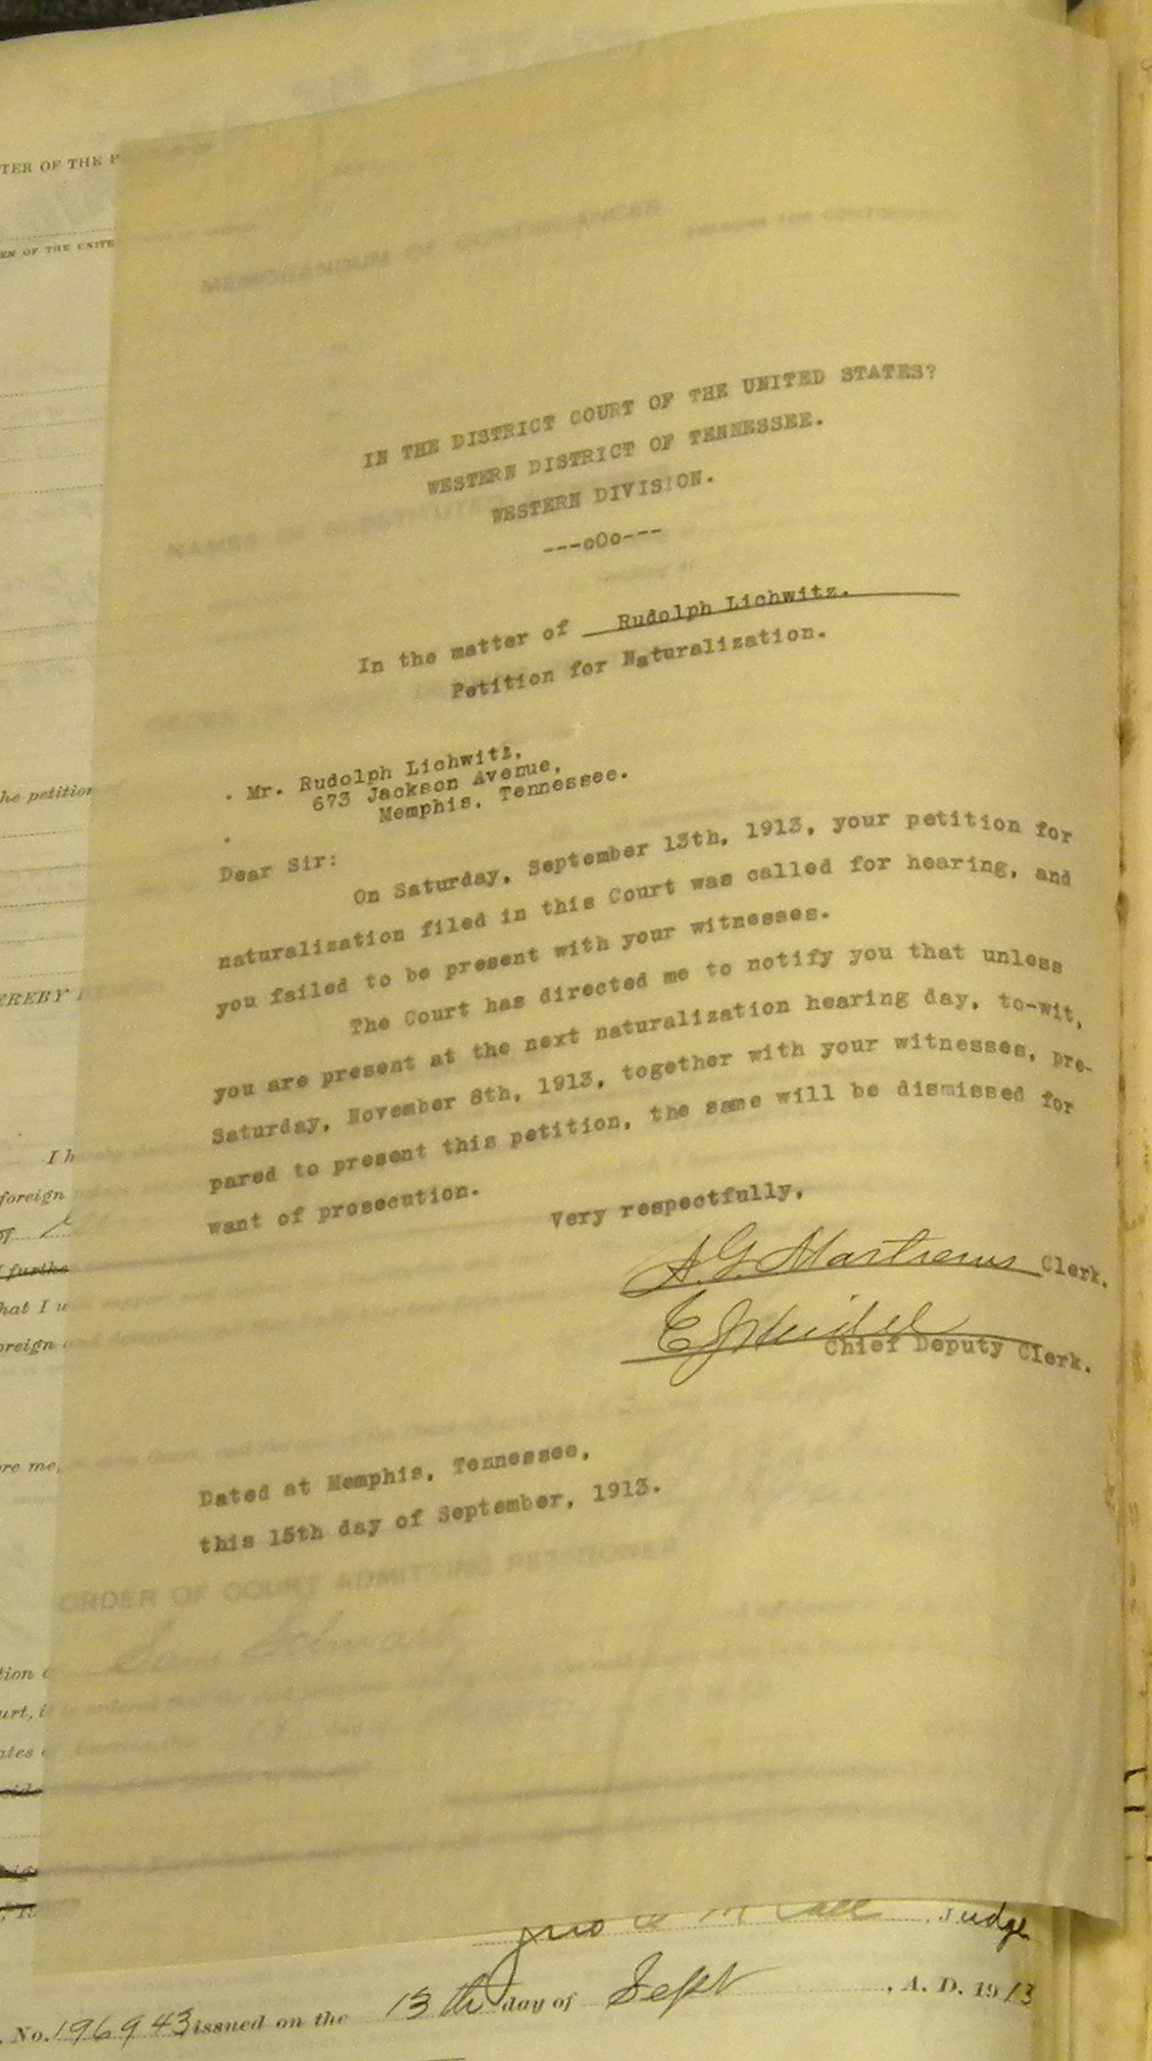 TER OF THE P
EN OF THE UNITE
MEMORANDUM OF CONTINUANCES
IN THE DISTRICT COURT OF THE UNITED STATES?
WESTERN DISTRICT OF TENNESSEE.
WESTERN DIVISION.
---oOo---
In the matter of Rudolph Lichwitz.
Petition for Naturalization.
. Mr. Rudolph Lichwitz,
673 Jackson Avenue,
Memphis, Tennessee.
.
Dear Sir:
On Saturday, September 13th, 1913, your petition for
naturalization filed in this Court was called for hearing, and
you failed to be present with your witnesses.
The Court has directed me to notify you that unless
you are present at the next naturalization hearing day, to-wit,
Saturday, November 8th, 1913, together with your witnesses, pre-
pared to present this petition, the same will be dismissed for
want of prosecution.
Very respectfully,
Clerk.
Chief Deputy Clerk.
Dated at Memphis, Tennessee,
this 15th day of September, 1913.
ORDER OF COURT ADMITTING PETITIONER
he petition
EREBY
I h
foreign
I furthe
hat I
oreign
re me,
tion
urt, i
ates
Jno McCall , Judge
. No. 196943 issued on the 13th day of Sept , A. D. 1913